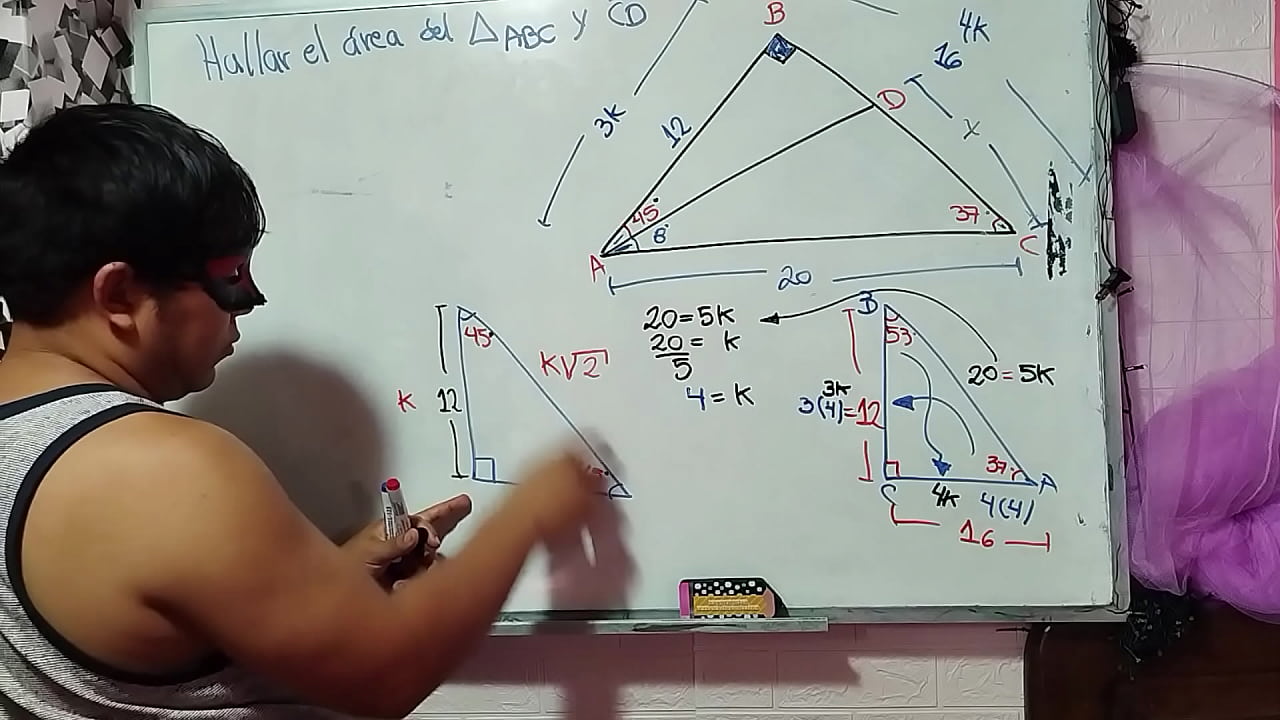 Hallar el área del △ABC y CD
B
4K
16
D
3K
12
x
45°
θ
37°
A
C
20
20=5K
20/5 = K
4=K
45°
K√2
K
12
B
53
20=5K
3K
3(4)=12
37°
C
A
4K
4(4)
16